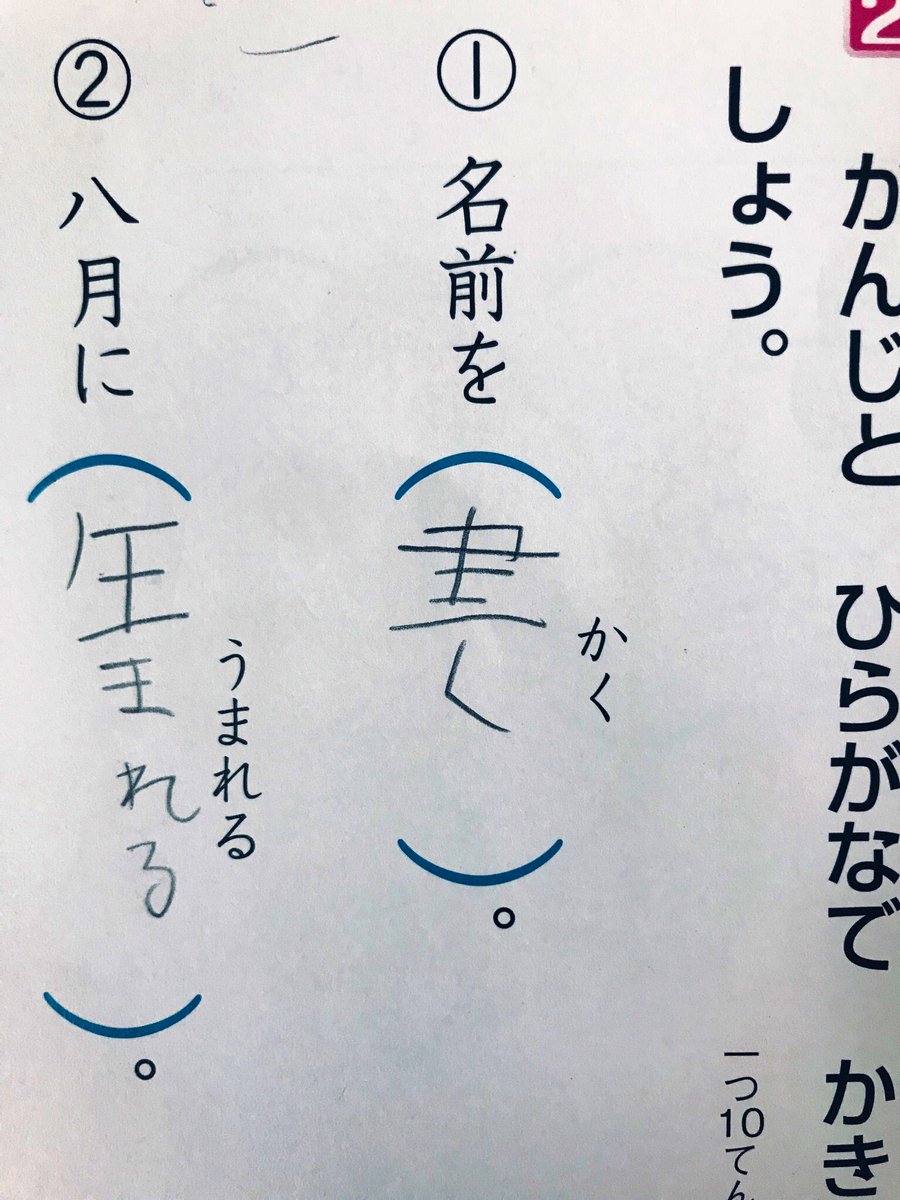 2 かんじと ひらがなで かき
しょう。 一つ10てん
① 名前を(書く)。
かく
② 八月に(生まれる)。
うまれる